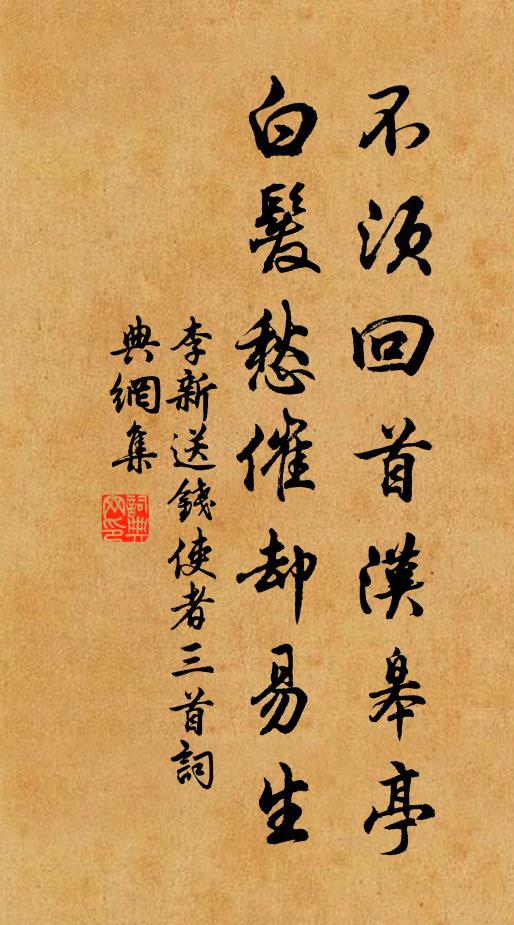 不須回首漢皋亭
白髮愁催却易生
李新送錢使者三首詞
典網集
詞典網印